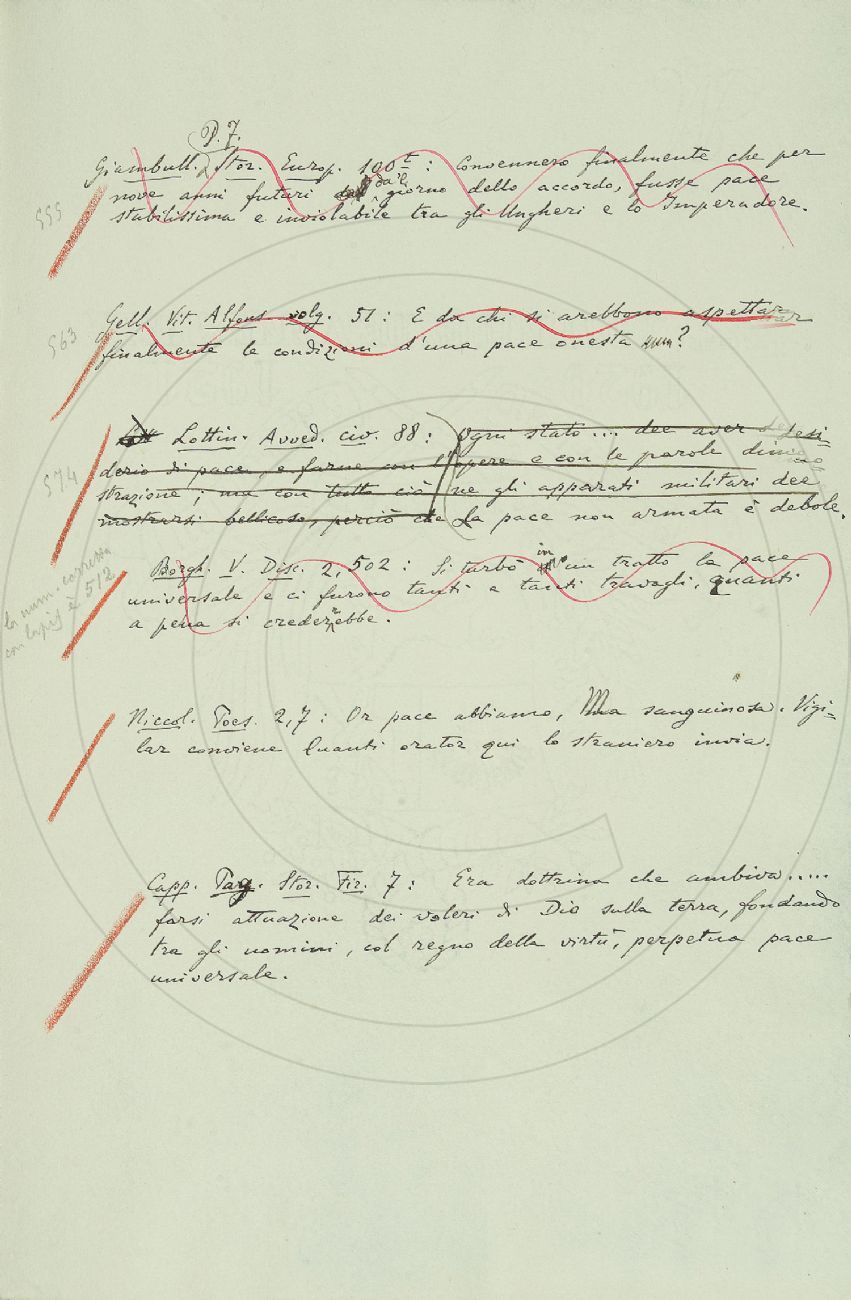 P. 7.
Giambull. Stor. Europ. 100 t: Convennero finalmente che per
nove anni futuri dal giorno dello accordo, fusse pace
stabilissima e inviolabile tra gli Ungheri e lo Imperadore.
555
Gell. Vit. Alfons volg. 51: E da chi si arebbono aspettar
finalmente le condizioni d'una pace onesta ?
563
Lottin. Avved. civ. 88: Ogni stato ... dee aver desi-
derio di pace, e farne con l'opere e con le parole dimo-
strazione; ma con tutto ciò ne gli apparati militari dee
mostrarsi bellicoso, perciò che La pace non armata è debole.
574
Borgh. V. Disc. 2, 502: Si turbò in un tratto la pace
universale e ci furono tanti e tanti travagli, quanti
a pena si crederrebbe.
la num. corressa
con lapis è 512
Niccol. Poes. 2, 7: Or pace abbiamo, Ma sanguinosa. Vigi-
lar conviene Quanti orator qui lo straniero invia.
Capp. Pag. Stor. Fir. 7: Era dottrina che ambiva .....
farsi attuazione dei voleri di Dio sulla terra, fondando
tra gli uomini, col regno della virtù, perpetua pace
universale.